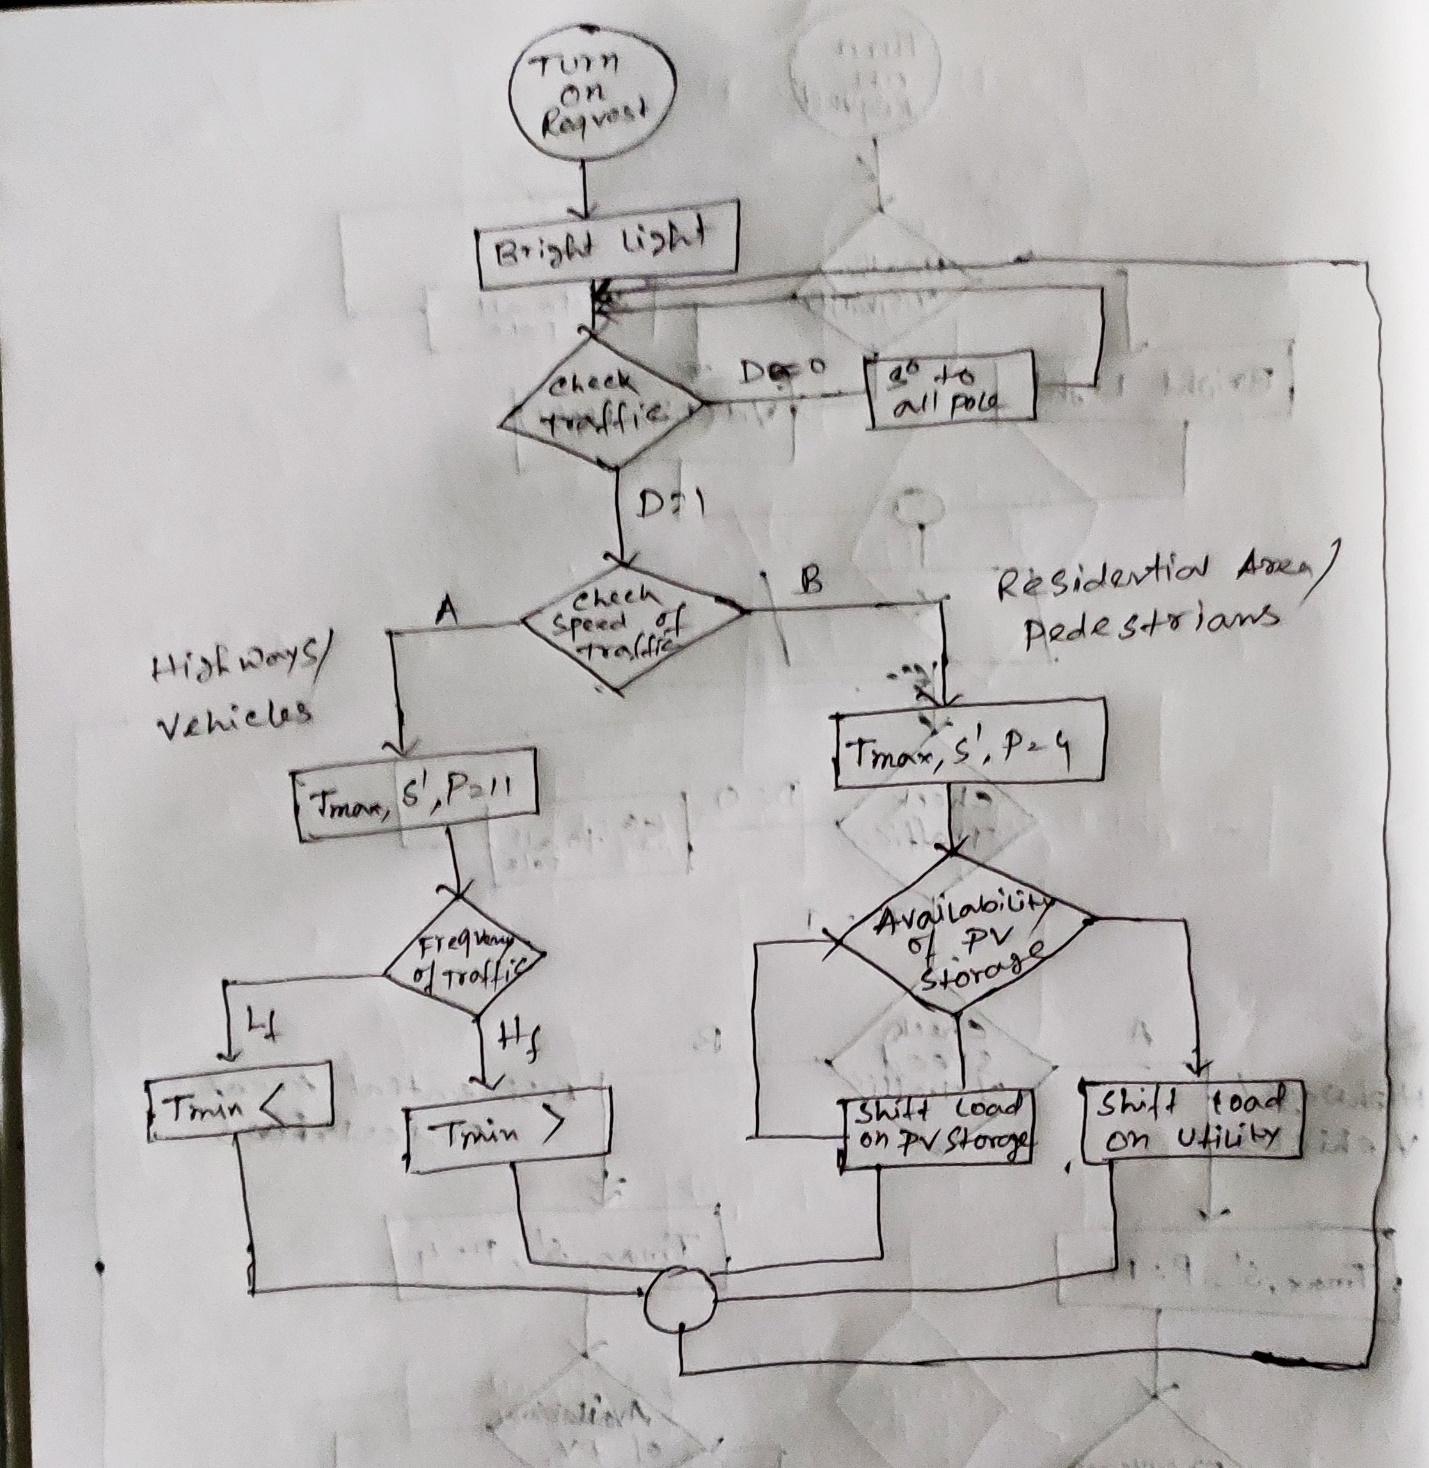 Turn
on
Request
Bright Light
Check
traffic
D=0
go to
all pole
D=1
Check
Speed of
traffic
A
B
Highways/
Vehicles
Residential Area/
Pedestrians
Tmax, S', P=11
Tmax, S', P=4
Frequency
of Traffic
Availability
of PV
Storage
Lf
Hf
Tmin <
Tmin >
Shift Load
on PV Storage
Shift Load
on Utility